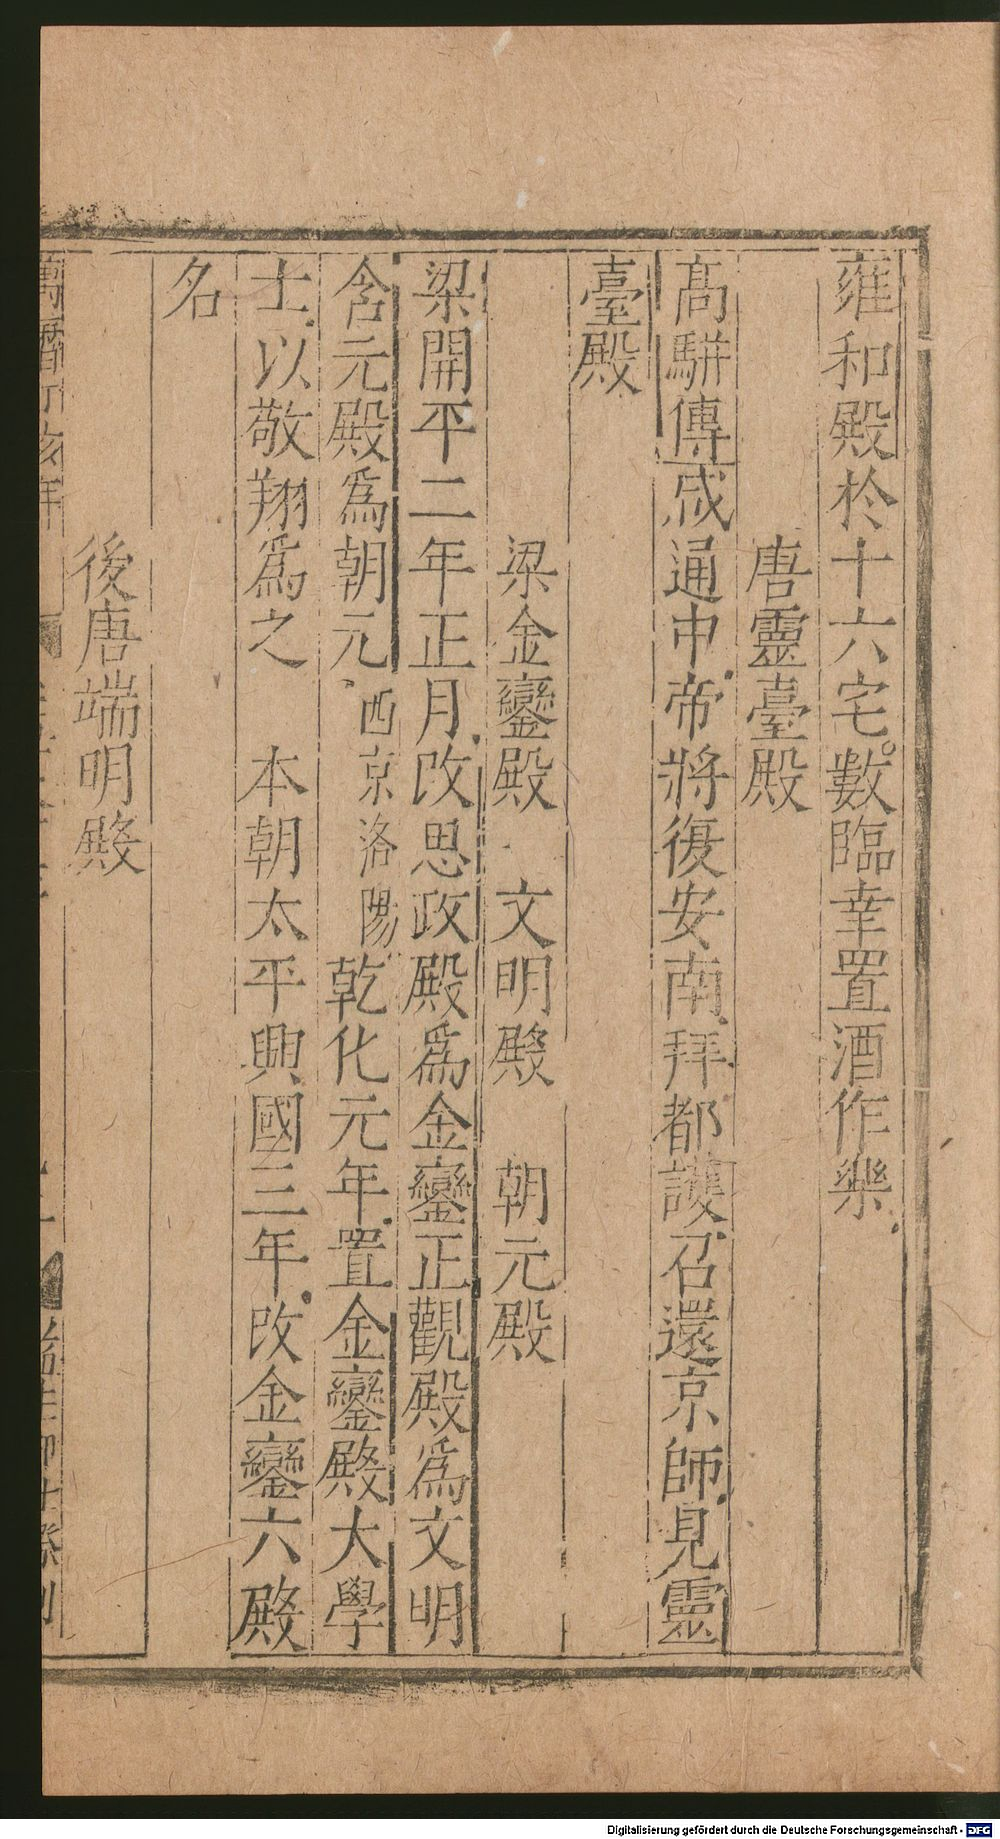 雍和殿於十六宅數臨幸置酒作樂
唐靈臺殿
髙駢傳咸通中帝將復安南拜都護召還京師見靈
臺殿
梁金鑾殿　文明殿　朝元殿
梁開平二年正月改思政殿爲金鑾正觀殿爲文明
含元殿爲朝元西京洛陽乾化元年置金鑾殿大學
士以敬翔爲之　本朝太平興國三年改金鑾六殿
名
後唐端明殿
萬曆丁亥年
Digitalisierung gefördert durch die Deutsche Forschungsgemeinschaft - DFG